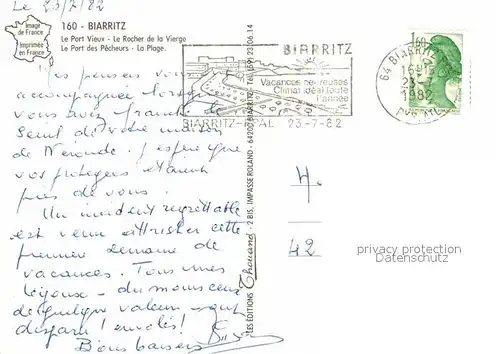 Le 23/7/82
Image
de France
Imprimée
en France
160 - BIARRITZ
Le Port Vieux - Le Rocher de la Vierge
Le Port des Pêcheurs - La Plage.
Mes pensées vous
accompagnent lorsque
vous avez franchi le
seuil de votre maison
de Neronde. J'espère que
vos protégées étaient
près de vous.
Un incident regrettable
est venu attrister cette
première semaine de
vacances. Tous mes
bijoux - du moins ceux
de quelque valeur sont
disparu ! envolés !
Bons baisers
LES ÉDITIONS Chatagneau - 2 BIS, IMPASSE ROLAND - 64200 BIARRITZ - TÉL. (59) 23.06.14
BIARRITZ
Vacances heureuses
Climat idéal toute
l'année
BIARRITZ-PPAL 23-7-82
64 BIARRITZ
1982
1,60
4.
42
privacy protection
Datenschutz